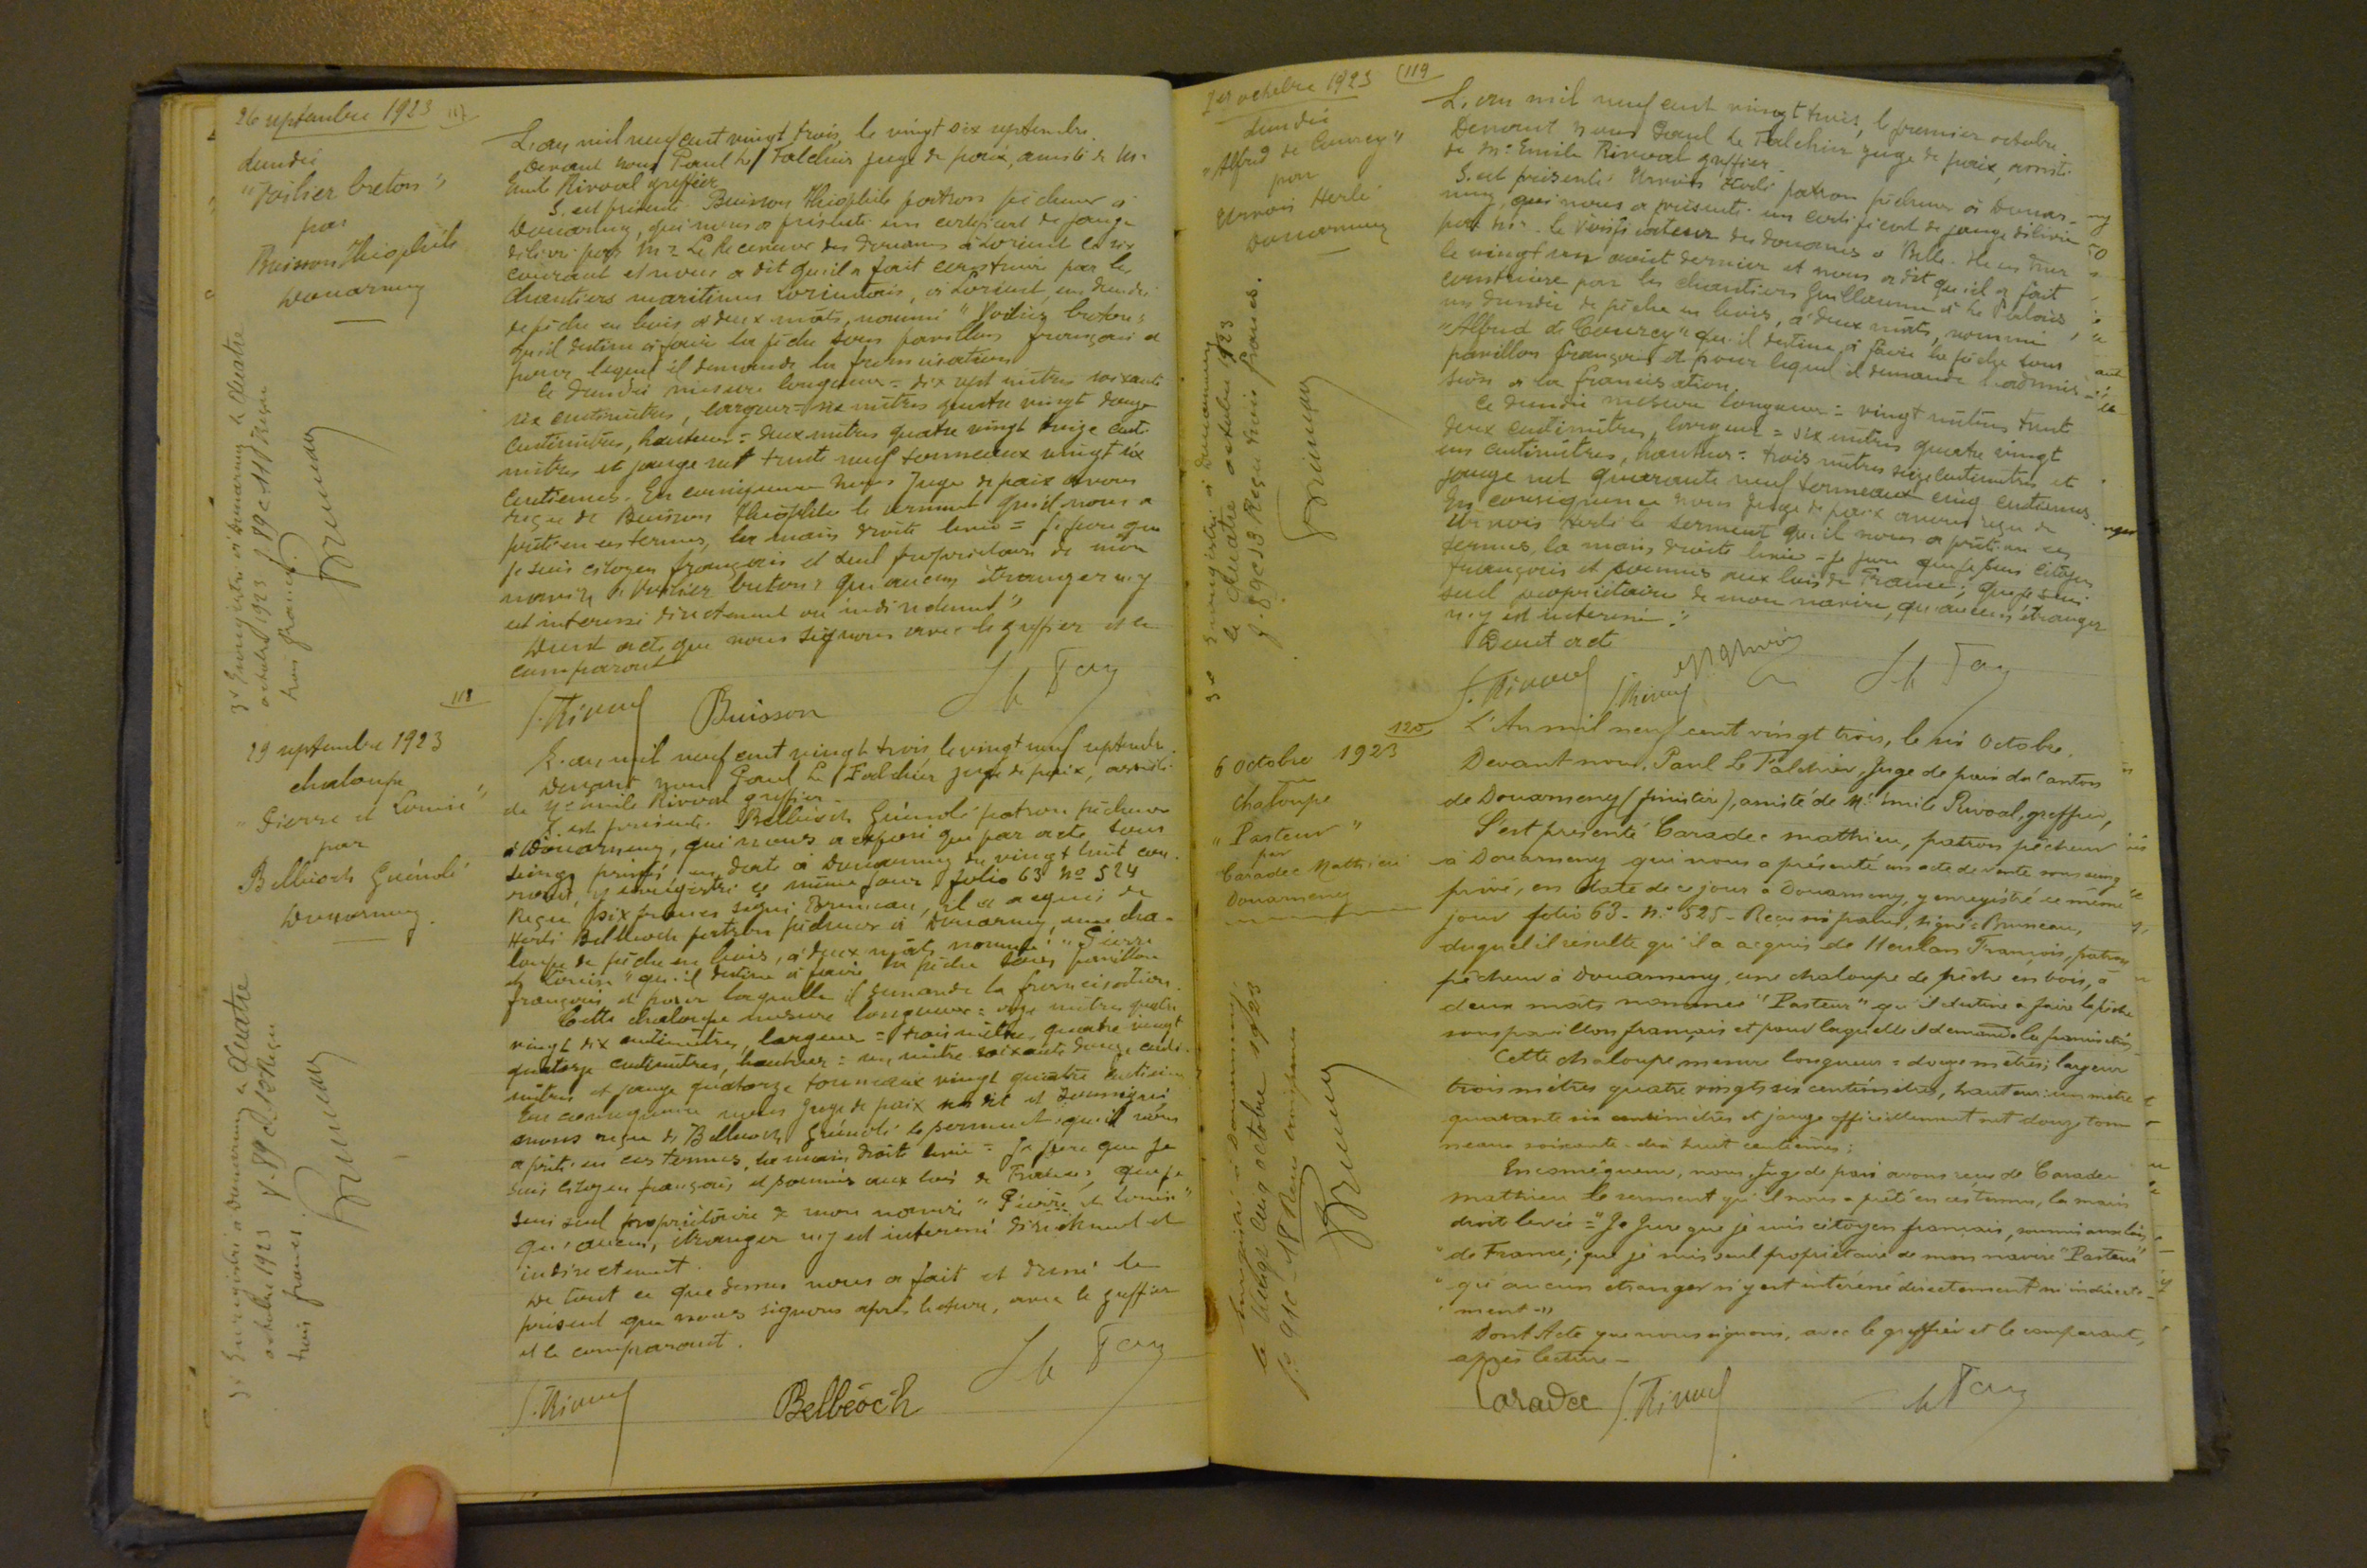 26 septembre 1923
117
dundée
"Voilier breton"
par
Buisson Théophile
Douarnenez
L'an mil neuf cent vingt trois, le vingt six septembre.
Devant nous Paul Le Falchier juge de paix, assisté de Me
Emile Rivoal greffier
S'est présenté Buisson Théophile patron pêcheur à
Douarnenez, qui nous a présenté un certificat de jauge
délivré par Mr Le Receveur des Douanes à Lorient le six
courant et nous a dit qu'il a fait construire par les
Chantiers maritimes Lorientais, à Lorient, un dundée
de pêche en bois à deux mâts, nommé "Voilier breton"
qu'il destine à faire la pêche sous pavillon français et
pour lequel il demande la francisation
Ce dundée mesure longueur = dix sept mètres soixante
six centimètres, largeur = six mètres quatre vingt douze
centimètres, hauteur = deux mètres quatre vingt treize centi
mètres et jauge net trente neuf tonneaux vingt six
centièmes. En conséquence nous Juge de paix avons
reçu de Buisson Théophile le serment qu'il nous a
prêté en ces termes, la main droite levée = Je jure que
je suis citoyen français et seul propriétaire de mon
navire le Voilier breton, qu'aucun étranger n'y
est intéressé directement ou indirectement"
Dont acte que nous signons avec le greffier et le
comparant
E. Rivoal Buisson
3d Enregistré à Douarnenez le Quatre
octobre 1923 f. 89 c 11 Reçu
trois francs.
Bruneau
118
29 septembre 1923
chaloupe
"Pierre et Louise"
par
Belbéoch Guénolé
Douarnenez.
L'an mil neuf cent vingt trois, le vingt neuf septembre.
Devant nous Paul Le Falchier juge de paix, assisté
de Me Emile Rivoal greffier
S'est présenté Belbéoch Guénolé patron pêcheur
à Douarnenez, qui nous a exposé que par acte sous
seings privés, en date à Douarnenez du vingt huit cou
rant, y enregistré ce même jour folio 63 No 524
Reçu six francs signé Bruneau, il a acquis de
Herlé Belbéoch patron pêcheur à Douarnenez, une cha-
loupe de pêche en bois, à deux mâts, nommée "Pierre
et Louise" qu'il destine à faire la pêche sous pavillon
français et pour laquelle il demande la francisation.
Cette chaloupe mesure longueur = onze mètres quatre
vingt dix centimètres, largeur = trois mètres quatre vingt
quatorze centimètres, hauteur = un mètre soixante douze centi
mètres et jauge quatorze tonneaux vingt quatre centièmes
En conséquence nous Juge de paix sus dit et soussigné
avons reçu de Belbéoch Guénolé le serment qu'il nous
a prêté en ces termes, la main droite levée = Je jure que je
suis citoyen français et soumis aux lois de France, que je
suis seul propriétaire de mon navire "Pierre et Louise"
qu'aucun étranger n'y est intéressé directement et
indirectement.
De tout ce que dessus nous a fait et dressé le
présent que nous signons après lecture, avec le greffier
et le comparant.
E. Rivoal Belbéoch
3d Enregistré à Douarnenez le Quatre
octobre 1923 f. 89 c. 12 Reçu
trois francs.
Bruneau
1er octobre 1923
119
dundée
"Alfred de Courcy"
par
Urvois Herlé
Douarnenez
L'an mil neuf cent vingt trois, le premier octobre.
Devant nous Paul Le Falchier juge de paix, assisté
de Me Emile Rivoal greffier.
S'est présenté Urvois Herlé patron pêcheur à Douar-
nenez, qui nous a présenté un certificat de jauge délivré
par Mr le Vérificateur des Douanes à Belle-Ile en Mer
le vingt un août dernier et nous a dit qu'il a fait
construire par les chantiers Guillaume à Le Palais,
un dundée de pêche en bois, à deux mâts, nommé
"Alfred de Courcy" qu'il destine à faire la pêche sous
pavillon français et pour lequel il demande l'admis-
sion à la francisation.
Ce dundée mesure longueur = vingt mètres trente
deux centimètres, largeur = six mètres quatre vingt
un centimètres, hauteur = trois mètres seize centimètres et
jauge net quarante neuf tonneaux cinq centièmes.
En conséquence nous Juge de paix avons reçu de
Urvois Herlé le serment qu'il nous a prêté en ces
termes, la main droite levée = Je jure que je suis citoyen
français et soumis aux lois de France, que je suis
seul propriétaire de mon navire, qu'aucun étranger
n'y est intéressé."
Dont acte
E. Rivoal E. Rivoal
3d Enregistré à Douarnenez
le Quatre octobre 1923
f. 89 c 13 Reçu trois francs.
Bruneau
120
6 octobre 1923
Chaloupe
"Pasteur"
par
Caradec Mathieu
Douarnenez
L'An mil neuf cent vingt trois, le six Octobre.
Devant nous, Paul Le Falchier, Juge de paix du Canton
de Douarnenez (finistère), assisté de Me Emile Rivoal, greffier,
S'est présenté Caradec Mathieu, patron pêcheur
à Douarnenez qui nous a présenté un acte de vente sous seing
privé, en date de ce jour à Douarnenez, y enregistré ce même
jour folio 63 - No 525 - Reçu six francs, signé = Bruneau,
duquel il résulte qu'il a acquis de Heulan François, patron
pêcheur à Douarnenez, une chaloupe de pêche en bois, à
deux mâts nommée "Pasteur" qu'il destine à faire la pêche
sous pavillon français et pour laquelle il demande la francisation.
Cette chaloupe mesure longueur = douze mètres; largeur
trois mètres quatre vingts six centimètres, hauteur: un mètre
quarante six centimètres et jauge officiellement net douze ton
neaux soixante-dix huit centièmes;
En conséquence, nous, Juge de paix avons reçu de Caradec
Mathieu le serment qu'il nous a prêté en ces termes, la main
droite levée = "Je Jure que je suis citoyen français, soumis aux lois
"de France; que je suis seul propriétaire de mon navire "Pasteur"
"qu'aucun étranger n'y est intéressé directement ni indirecte-
"ment."
Dont Acte que nous signons, avec le greffier et le comparant,
après lecture -
Caradec E. Rivoal
Enregistré à Douarnenez,
le octobre 1923
fo 91 c 18 Reçu
Bruneau